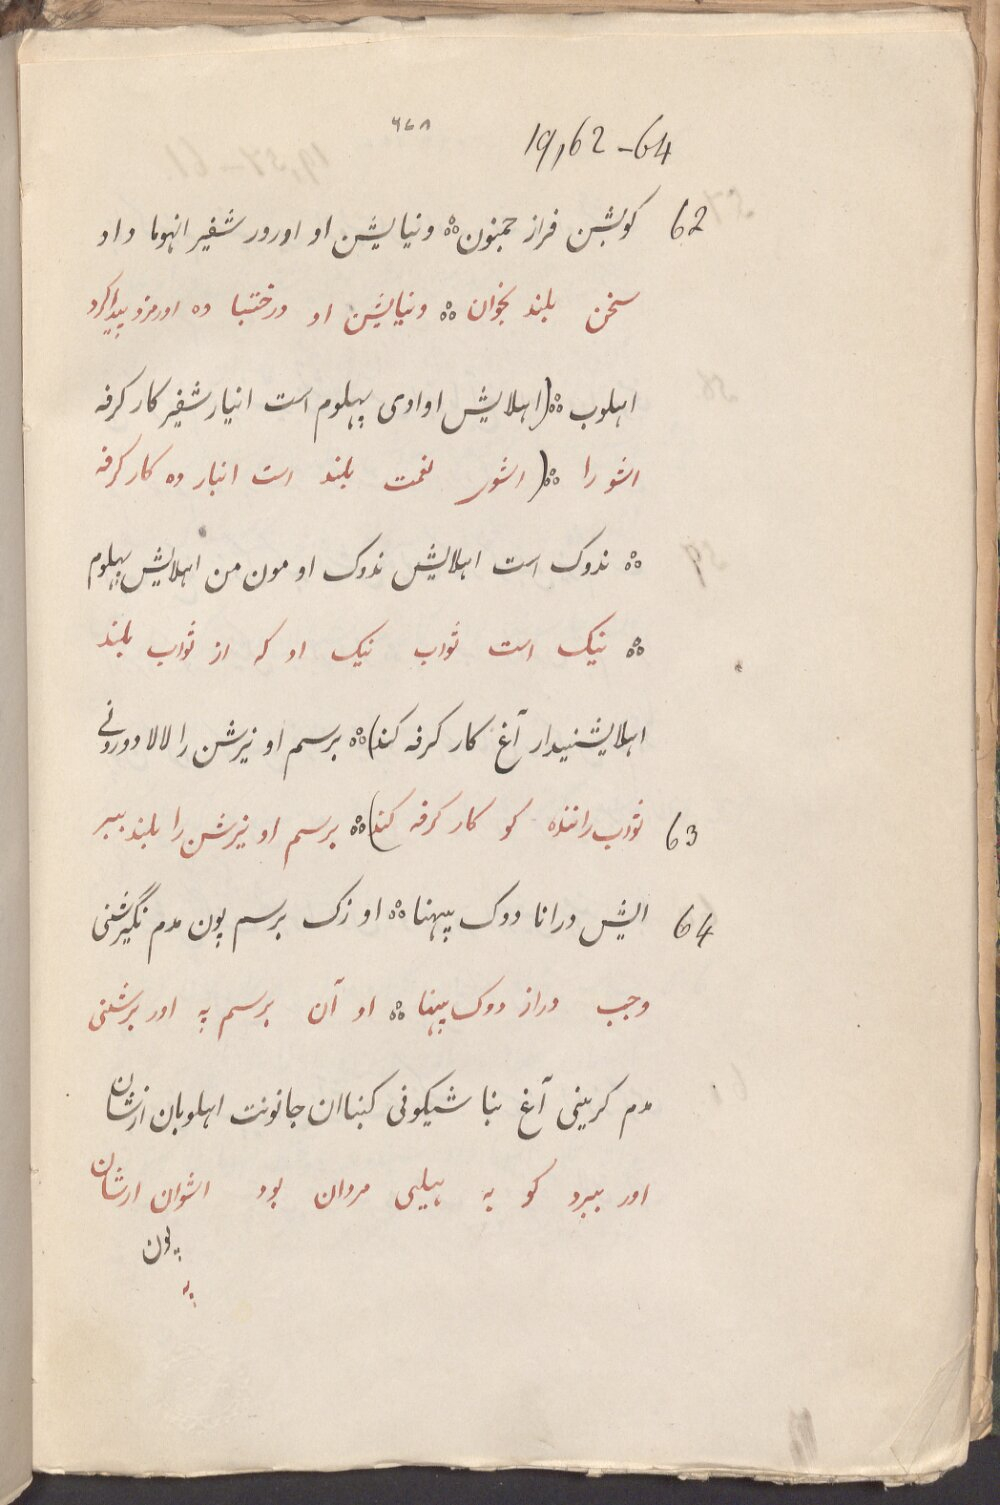 ٦٤٨
19,62-64
62 گوبشن فراز جمنون ⁘ ونیایشن او اورور شفیر انهوما داد
سخن بلند بخوان ⁘ ونیایشن او درختها وه اورمزد پیدا کرد
اهلوب ⁘ (اهلایش اوادی پهلوم است انبار شفیر کار کرفه
اشو را ⁘ (اشوی نعمت بلند است انبار وه کار کرفه
⁘ ندوک است اهلایش ندوک او مون من اهلایش پهلوم
⁘ نیک است ثواب نیک او که از ثواب بلند
اهلایشنیدار آغ کار کرفه کند) ⁘ برسم او نیرشن را لالا دورونی
63 ثواب راننده کو کار کرفه کند) ⁘ برسم او نیرشن را بلند ببر
64 ایش درانا دوک پهنا ⁘ او زک برسم پون مدم نگیرشنی
وجب دراز دوک پهنا ⁘ او آن برسم په اور برشنی
مدم کرینی آغ بنا شیکونی کبناان جانونت اهلوبان ازشان
اور ببرد کو به هیلیی مردان بود اشوان ازشان
پون
په